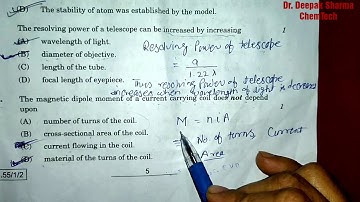 Dr. Deepak Sharma
ChemTech
(D) The stability of atom was established by the model.
The resolving power of a telescope can be increased by increasing 1
(A) wavelength of light.
(B) diameter of objective.
(C) length of the tube.
(D) focal length of eyepiece.
Resolving Power of telescope
= a
1.22λ
Thus resolving Power of telescope
increases when wavelength of light is decreases
The magnetic dipole moment of a current carrying coil does not depend
upon 1
(A) number of turns of the coil.
(B) cross-sectional area of the coil.
(C) current flowing in the coil.
(D) material of the turns of the coil.
M = n i A
No of turns Current
Area
.55/1/2 5